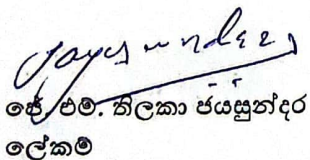 Jayasundara
ජේ. එම්. තිලකා ජයසුන්දර
ලේකම්